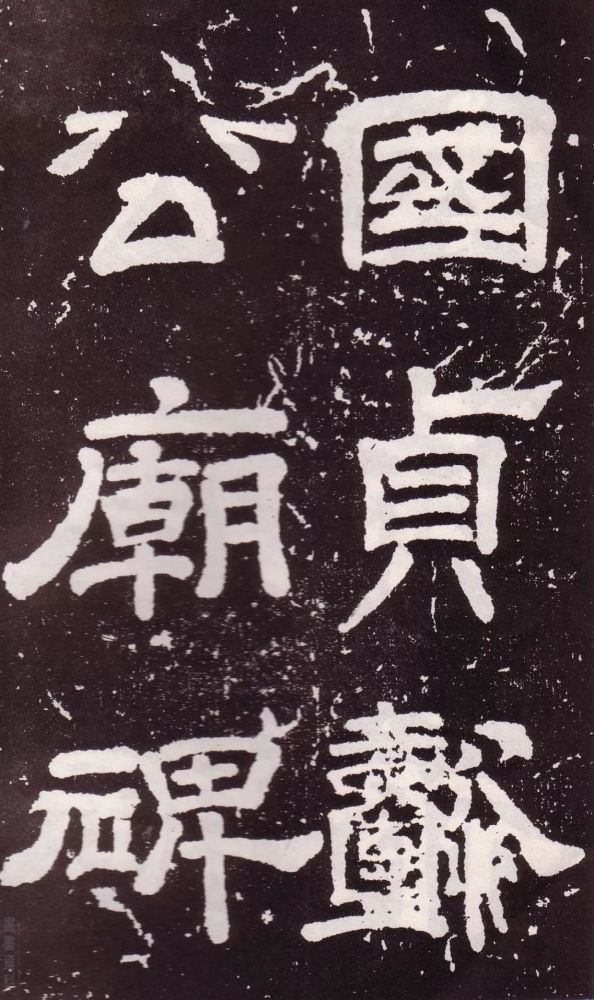 國貞
公廟碑